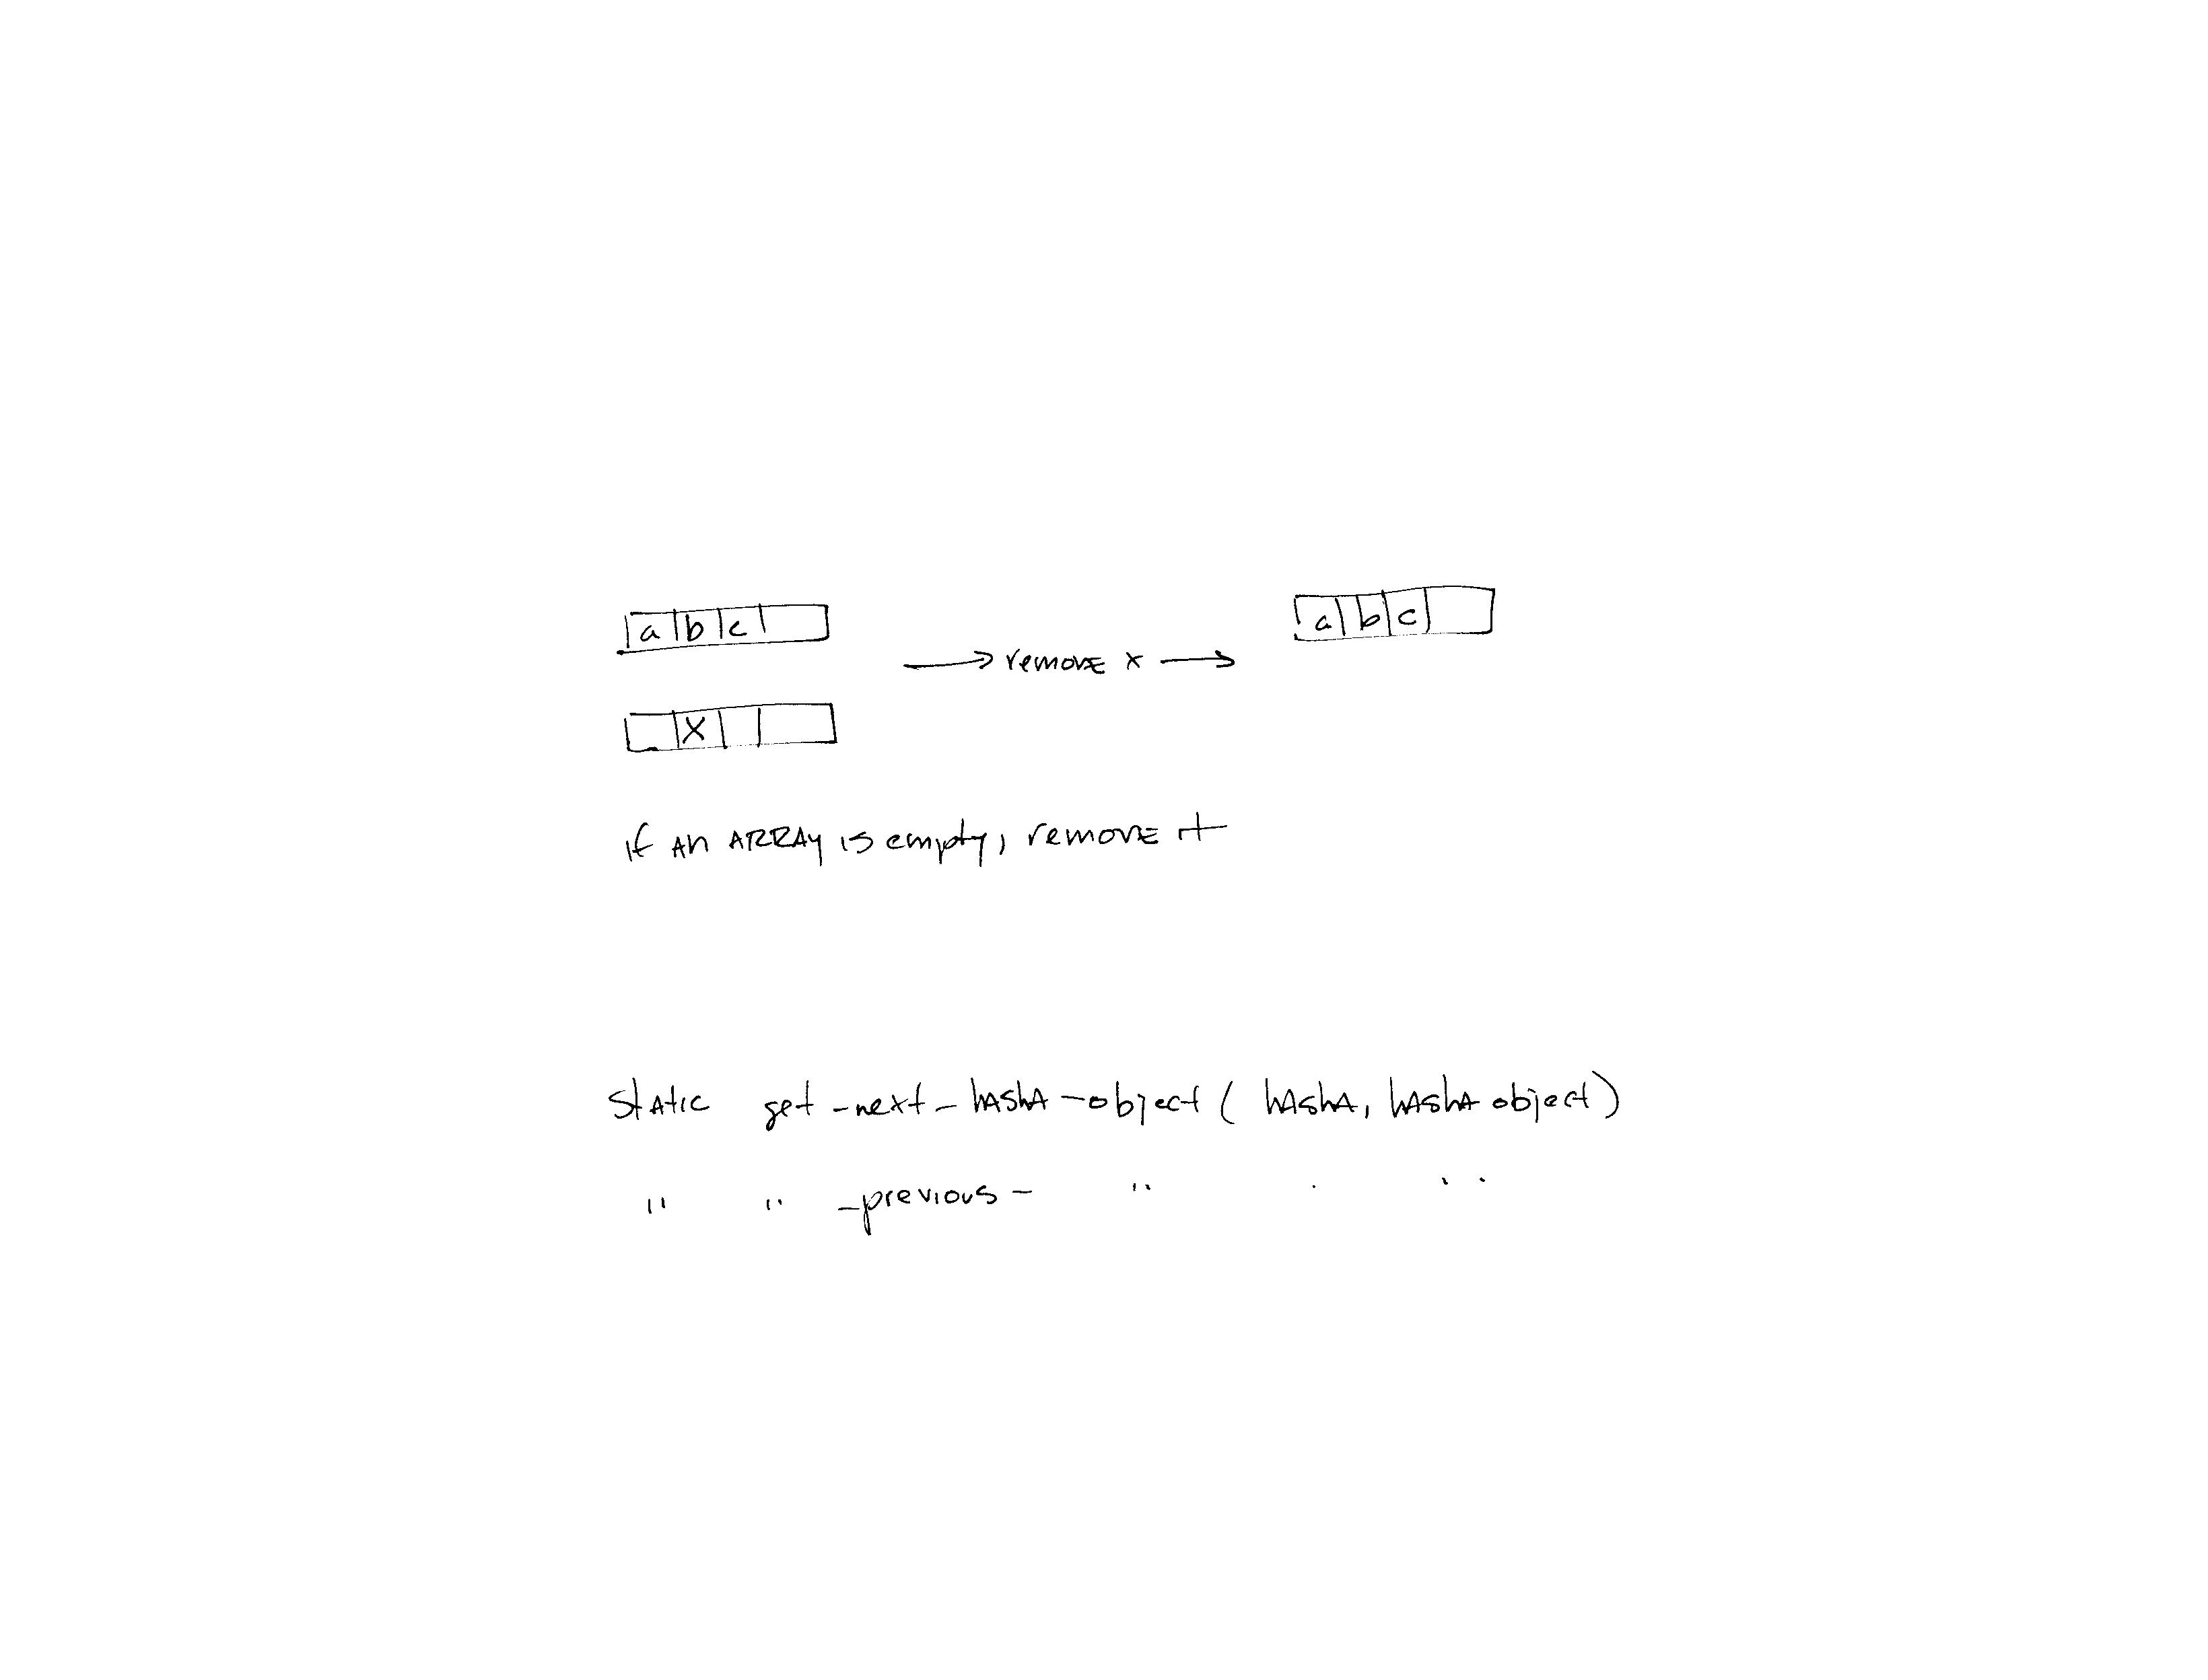 a b c
→ remove x →
a b c
x
if an ARRAY is empty, remove it
static get_next_hashA_object ( hashA, hashA object )
" " _previous_ " . . .